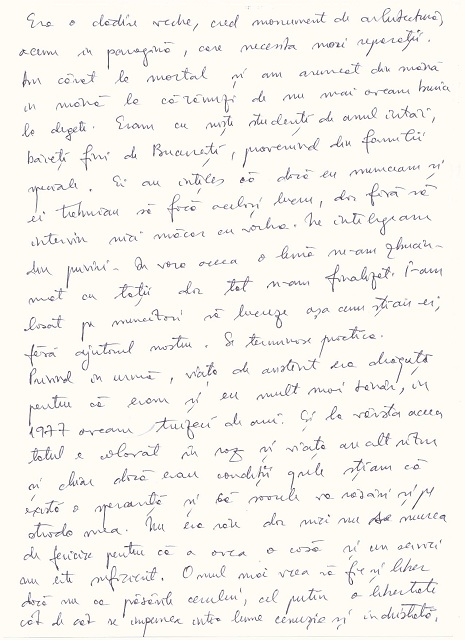 Era o clădire veche, cred monument de arhitectură,
acum in paragină, care necesita mari reparații.
Am cărat la mortal și am aruncat din mână
in mână la cărămizi de nu mai aveam buricε
la degete. Eram cu niște studenți de anul intâi,
băieți fini de București, provenind din familii
speciale. Ei au ințeles că dacă eu munceam și
ei trebuiau să facă același lucru, dar fără să
intervin nici măcar cu vorba. Ne intelegeam
din priviri. In vara aceea o lună ne-am zbuciu-
mat cu toții dar tot n-am finalizat. I-am
lăsat pe muncitori să lucreze așa cum știau ei,
fără ajutorul nostru. Se terminase practica.
Privind in urmă, viața de student era draguța
pentru că eram și eu mult mai tânăr, in
1977 aveam treizeci de ani. Și la vârsta aceea
totul e colorat in roz și viața are alt ritm
și chiar dacă erau condiții grele știam că
există o speranță și că soarele va răsări și pe
strada mea. Nu era rău dar nici nu murea
de fericire pentru că a avea o casă și un servici
nu este suficient. Omul mai vrea să fie și liber
dacă nu ca păsările cerului, cel putin o libertate
cât de cât se impunea intr-o lume cenușie și indoctrinată,